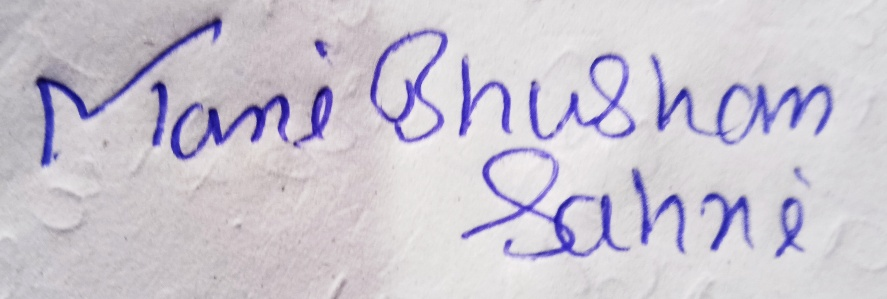 Mani Bhushan
Sahni